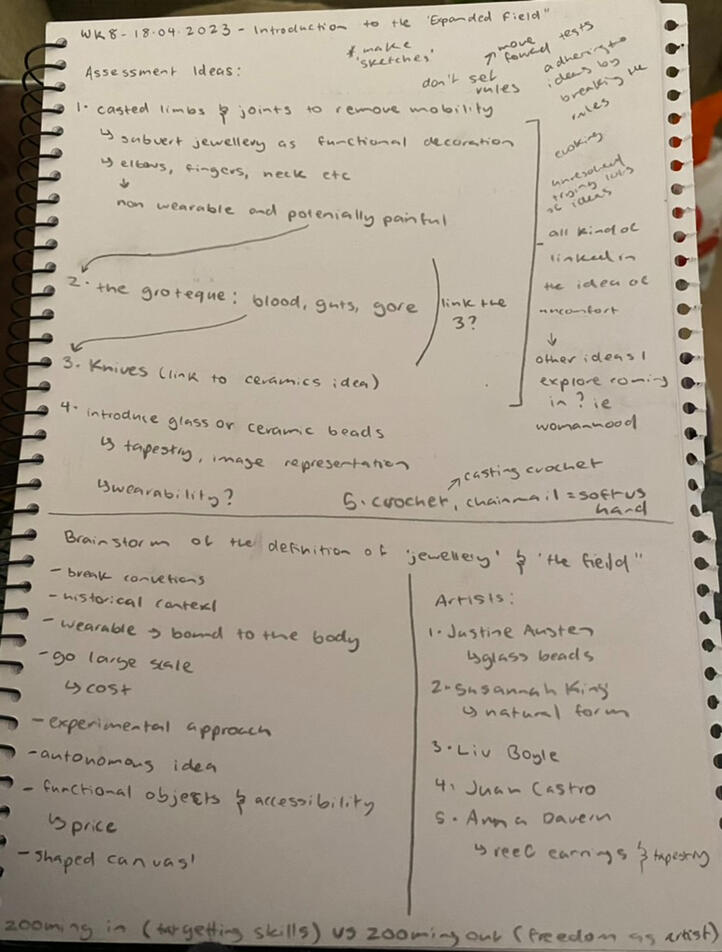 WK8 - 18.04.2023 - Introduction to the "Expanded Field"
* make
'sketches'
Assessment Ideas:
don't set
rules
move
foward tests
adhering to
ideas by
breaking the
rules
1. casted limbs & joints to remove mobility
↳ subvert jewellery as functional decoration
↳ elbows, fingers, neck etc
↓
non wearable and potenially painful
2. the groteque: blood, guts, gore
link the
3?
3. Knives (link to ceramics idea)
4. introduce glass or ceramic beads
↳ tapestry, image representation
↳ wearability?
evoking
unresolved
trying lots
of ideas
all kind of
linked in
the idea of
uncomfort
↓
other ideas I
explore coming
in? ie
womanhood
casting crochet
5. crochet, chainmail = soft vs
hard
Brainstorm of the definition of 'jewellery' & 'the field"
- break convetions
- historical context
- wearable → bound to the body
- go large scale
↳ cost
- experimental approach
- autonomous idea
- functional objects & accessibility
↳ price
- shaped canvas!
Artists:
1. Justine Austen
↳ glass beads
2. Susannah King
↳ natural form
3. Liv Boyle
4. Juan Castro
5. Anna Davern
↳ reef earings & tapestry
zooming in (targetting skills) vs zooming out (freedom as artist)